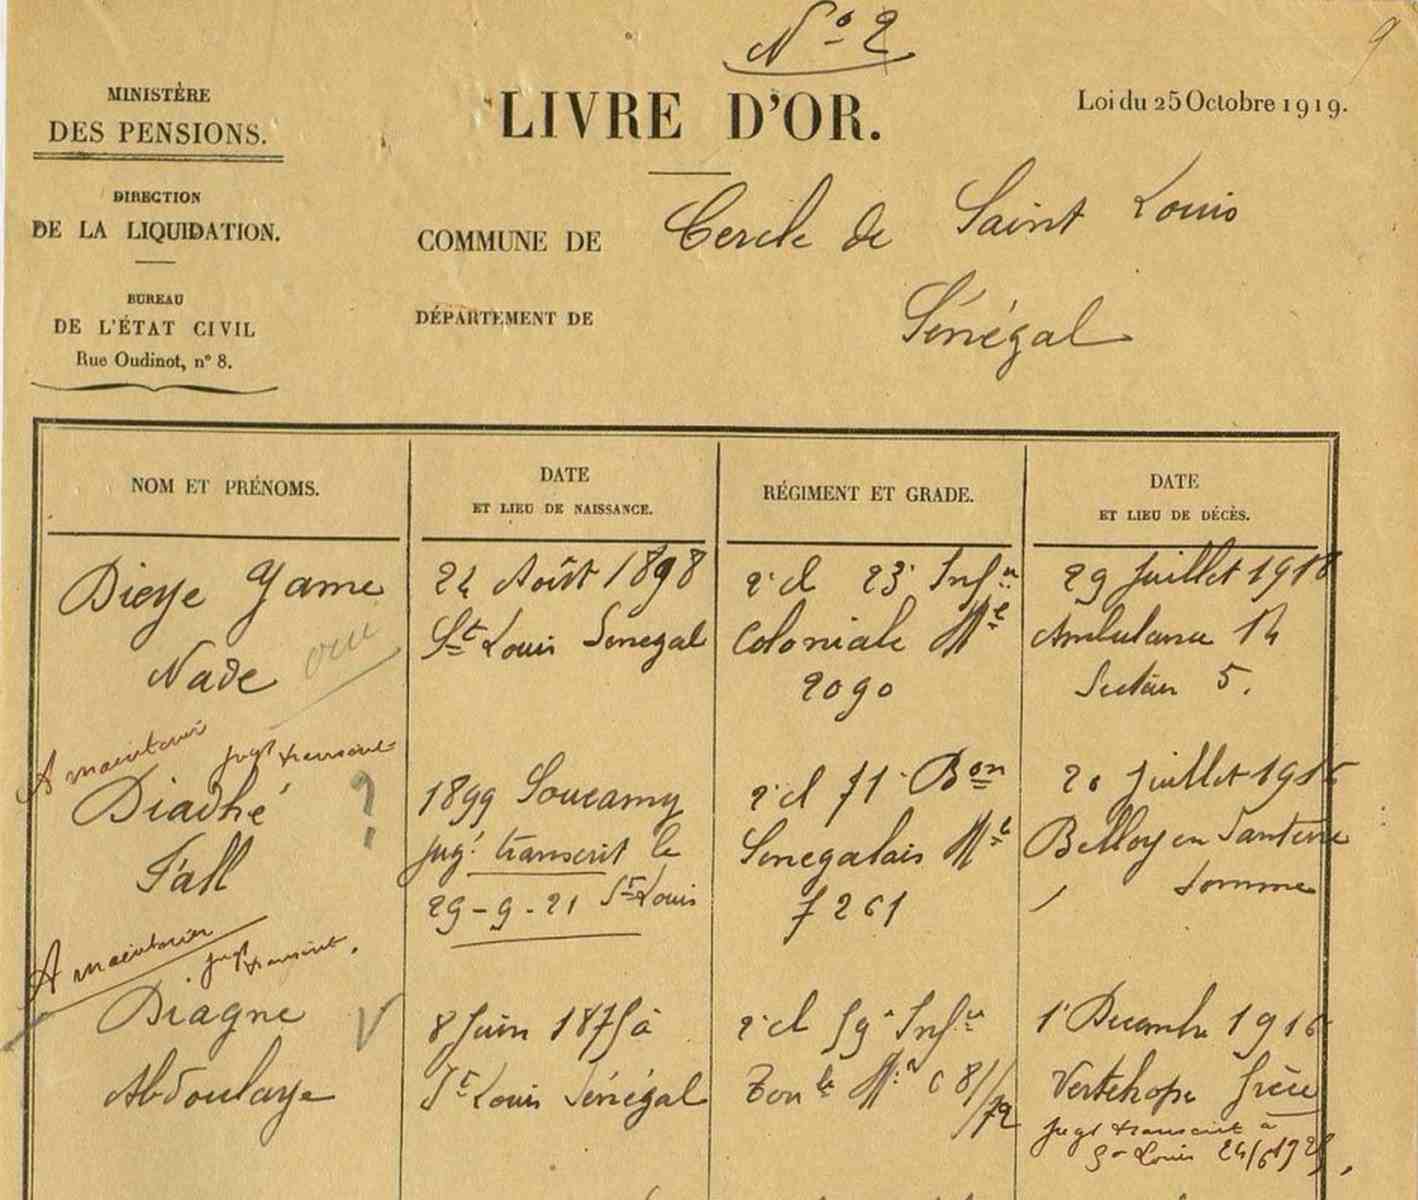 Nº 2
9
MINISTÈRE
DES PENSIONS.
DIRECTION
DE LA LIQUIDATION.
BUREAU
DE L'ÉTAT CIVIL
Rue Oudinot, n° 8.
LIVRE D'OR.
Loi du 25 Octobre 1919.
COMMUNE DE Cercle de Saint Louis
DÉPARTEMENT DE Sénégal
NOM ET PRÉNOMS.
DATE
ET LIEU DE NAISSANCE.
RÉGIMENT ET GRADE.
DATE
ET LIEU DE DÉCÈS.
Dieye Yame
Nade
24 Août 1898
St Louis Senegal
2e cl 23e Infie
Coloniale Mle
2090
29 Juillet 1918
Ambulance 14
Secteur 5.
A maintenir jugt transcrit
Diadhé ?
Fall
1899 Soucamy
jugt transcrit le
29-9-21 St Louis
2e cl 71e Bon
Senegalais Mle
7261
20 Juillet 1916
Belloy en Santerre
Somme
A maintenir
jugt transcrit.
Diagne V
Abdoulaye
8 Juin 1875 à
St Louis Sénégal
2e cl 59e Infie
1er Decembre 1916
Vertekope Grèce
jugt transcrit à
St Louis